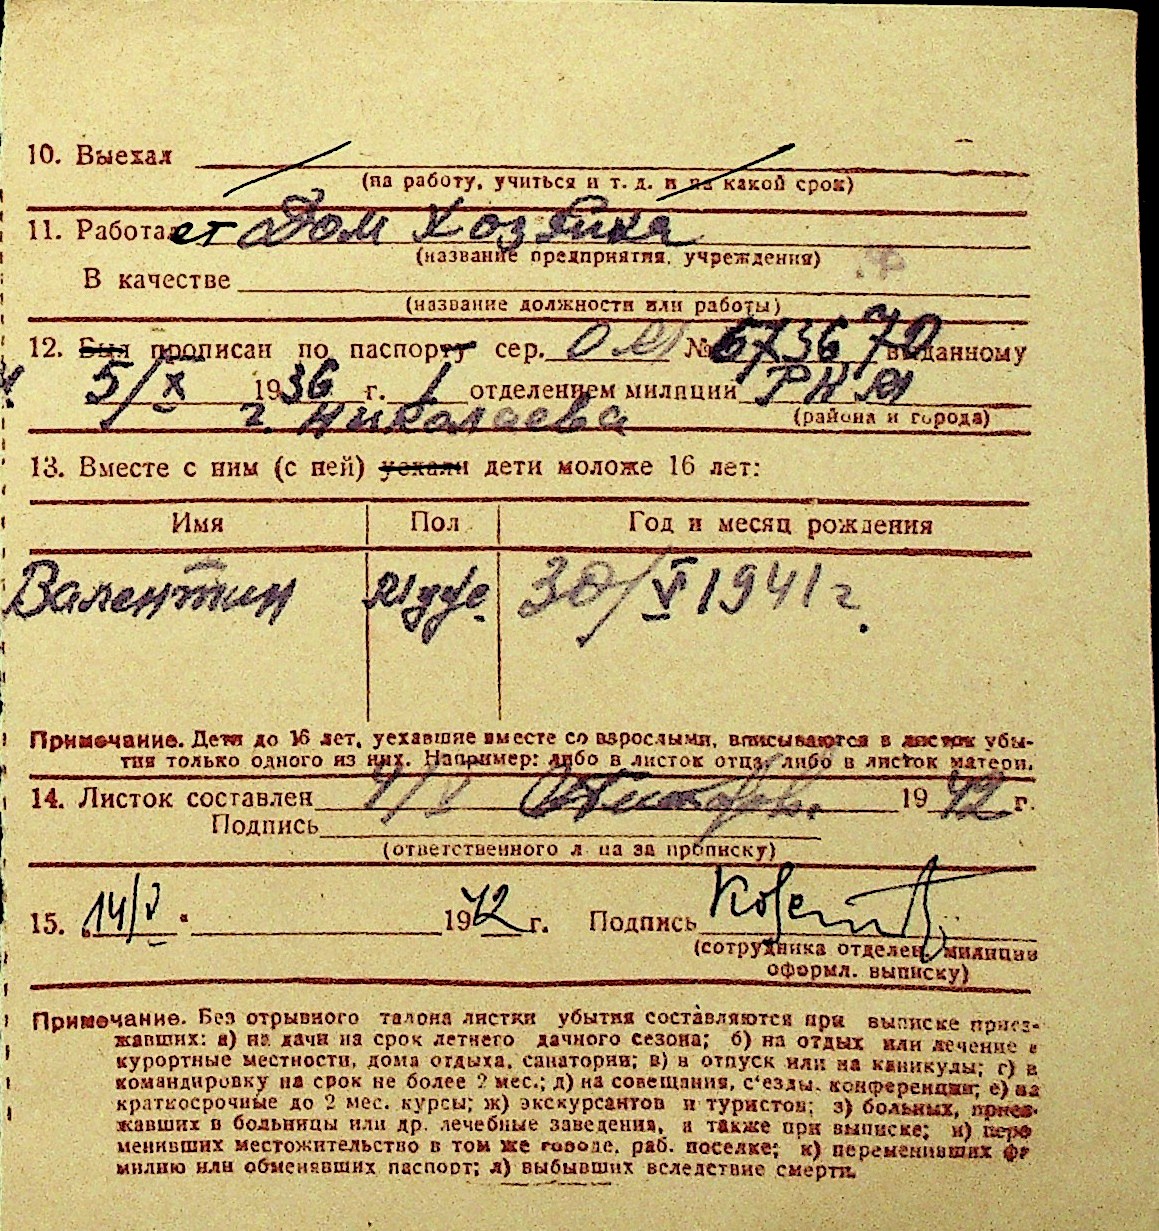 10. Выехал
(на работу, учиться и т. д. и на какой срок)
11. Работает Дом Хозяйка
(название предприятия, учреждения)
В качестве
(название должности или работы)
12. Был прописан по паспорту сер. ОМ № 673670 выданному
5/X 1936 г. 1 отделением милиции РКМ
г. Николаева (района и города)
13. Вместе с ним (с ней) уехали дети моложе 16 лет:
Имя Пол Год и месяц рождения
Валентин муж. 30/V 1941 г.
Примечание. Дети до 16 лет, уехавшие вместе со взрослыми, вписываются в листок убы-
тия только одного из них. Например: либо в листок отца, либо в листок матери.
14. Листок составлен 4/V 1942 г.
Подпись
(ответственного лица за прописку)
15. 14/V 1942 г. Подпись
(сотрудника отделен. милиции
оформл. выписку)
Примечание. Без отрывного талона листки убытия составляются при выписке приез-
жавших: а) на дачи на срок летнего дачного сезона; б) на отдых или лечение в
курортные местности, дома отдыха, санатории; в) в отпуск или на каникулы; г) в
командировку на срок не более 2 мес.; д) на совещания, с'езды, конференции; е) на
краткосрочные до 2 мес. курсы; ж) экскурсантов и туристов; з) больных, приез-
жавших в больницы или др. лечебные заведения, а также при выписке; и) пере
менивших местожительство в том же городе, раб. поселке; к) переменивших фа
милию или обменявших паспорт; л) выбывших вследствие смерти.